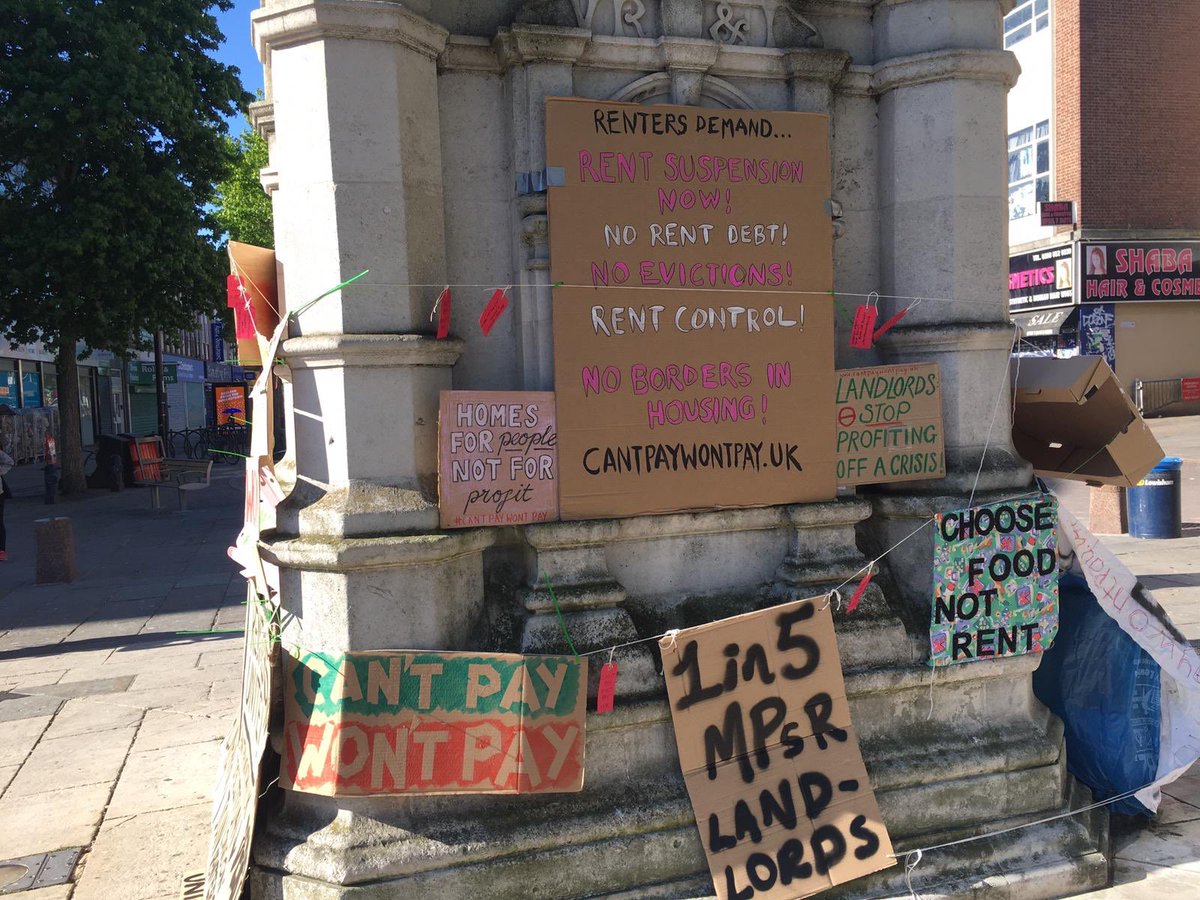 VR &
RENTERS DEMAND...
RENT SUSPENSION
NOW!
NO RENT DEBT!
NO EVICTIONS!
RENT CONTROL!
NO BORDERS IN
HOUSING!
CANTPAYWONTPAY.UK
HOMES
FOR people
NOT FOR
profit
#CANTPAYWONTPAY
www.cantpaywontpay.uk
LANDLORDS
STOP
PROFITING
OFF A CRISIS!
CHOOSE
FOOD
NOT
RENT
CAN'T PAY
WON'T PAY
1 in 5
MPs R
LAND-
LORDS
SHABA
HAIR & COSME
METICS
SALE
SHABA
Lewisham